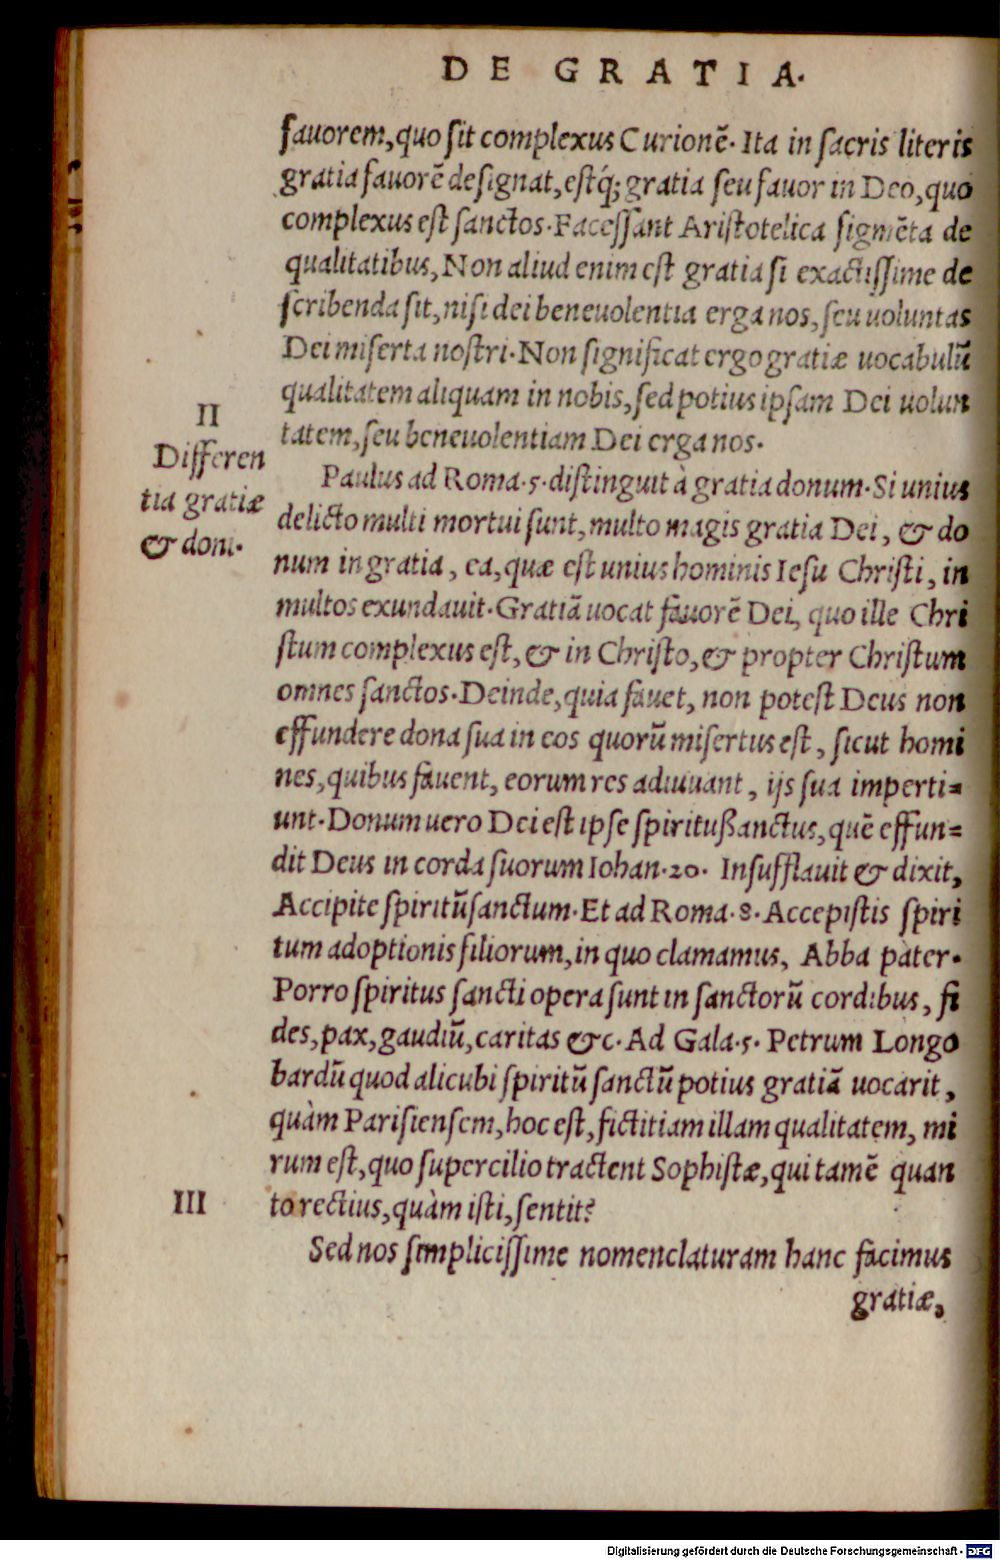 DE GRATIA.
fauorem, quo ſit complexus Curionẽ. Ita in ſacris literis
gratia fauorẽ deſignat, eſtq́; gratia ſeu fauor in Deo, quo
complexus eſt ſanctos. Faceſſant Ariſtotelica figmẽta de
qualitatibus, Non aliud enim eſt gratia ſi exactiſſime de
ſcribenda ſit, niſi dei beneuolentia erga nos, ſeu uoluntas
Dei miſerta noſtri. Non ſignificat ergo gratiæ uocabulũ
qualitatem aliquam in nobis, ſed potius ipſam Dei uolun
tatem, ſeu beneuolentiam Dei erga nos.
II
Differen
tia gratiæ
& doni.
Paulus ad Roma.5. diſtinguit à gratia donum. Si unius
delicto multi mortui ſunt, multo magis gratia Dei, & do
num in gratia, ea, quæ eſt unius hominis Ieſu Chriſti, in
multos exundauit. Gratiã uocat fauorẽ Dei, quo ille Chri
ſtum complexus eſt, & in Chriſto, & propter Chriſtum
omnes ſanctos. Deinde, quia fauet, non poteſt Deus non
effundere dona ſua in eos quorũ miſertus eſt, ſicut homi
nes, quibus fauent, eorum res adiuuant, ijs ſua imperti=
unt. Donum uero Dei eſt ipſe ſpiritußanctus, quẽ effun=
dit Deus in corda ſuorum Iohan.20. Inſufflauit & dixit,
Accipite ſpiritũſanctum. Et ad Roma.8. Accepiſtis ſpiri
tum adoptionis filiorum, in quo clamamus, Abba pater.
Porro ſpiritus ſancti opera ſunt in ſanctorũ cordibus, fi
des, pax, gaudiũ, caritas &c. Ad Gala.5. Petrum Longo
bardũ quod alicubi ſpiritũ ſanctũ potius gratiã uocarit,
quàm Pariſienſem, hoc eſt, fictitiam illam qualitatem, mi
rum eſt, quo ſupercilio tractent Sophiſtæ, qui tamẽ quan
to rectius, quàm iſti, ſentit?
III
Sed nos ſimpliciſſime nomenclaturam hanc facimus
gratiæ,
Digitalisierung gefördert durch die Deutsche Forschungsgemeinschaft - DFG